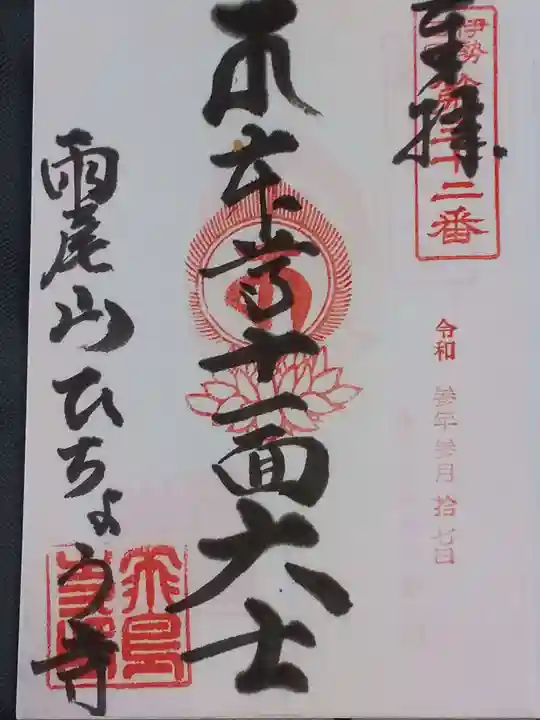 奉拝
伊勢
二十二番
令和 参年参月拾七日
本尊十一面大士
雨尾山ひちょう寺